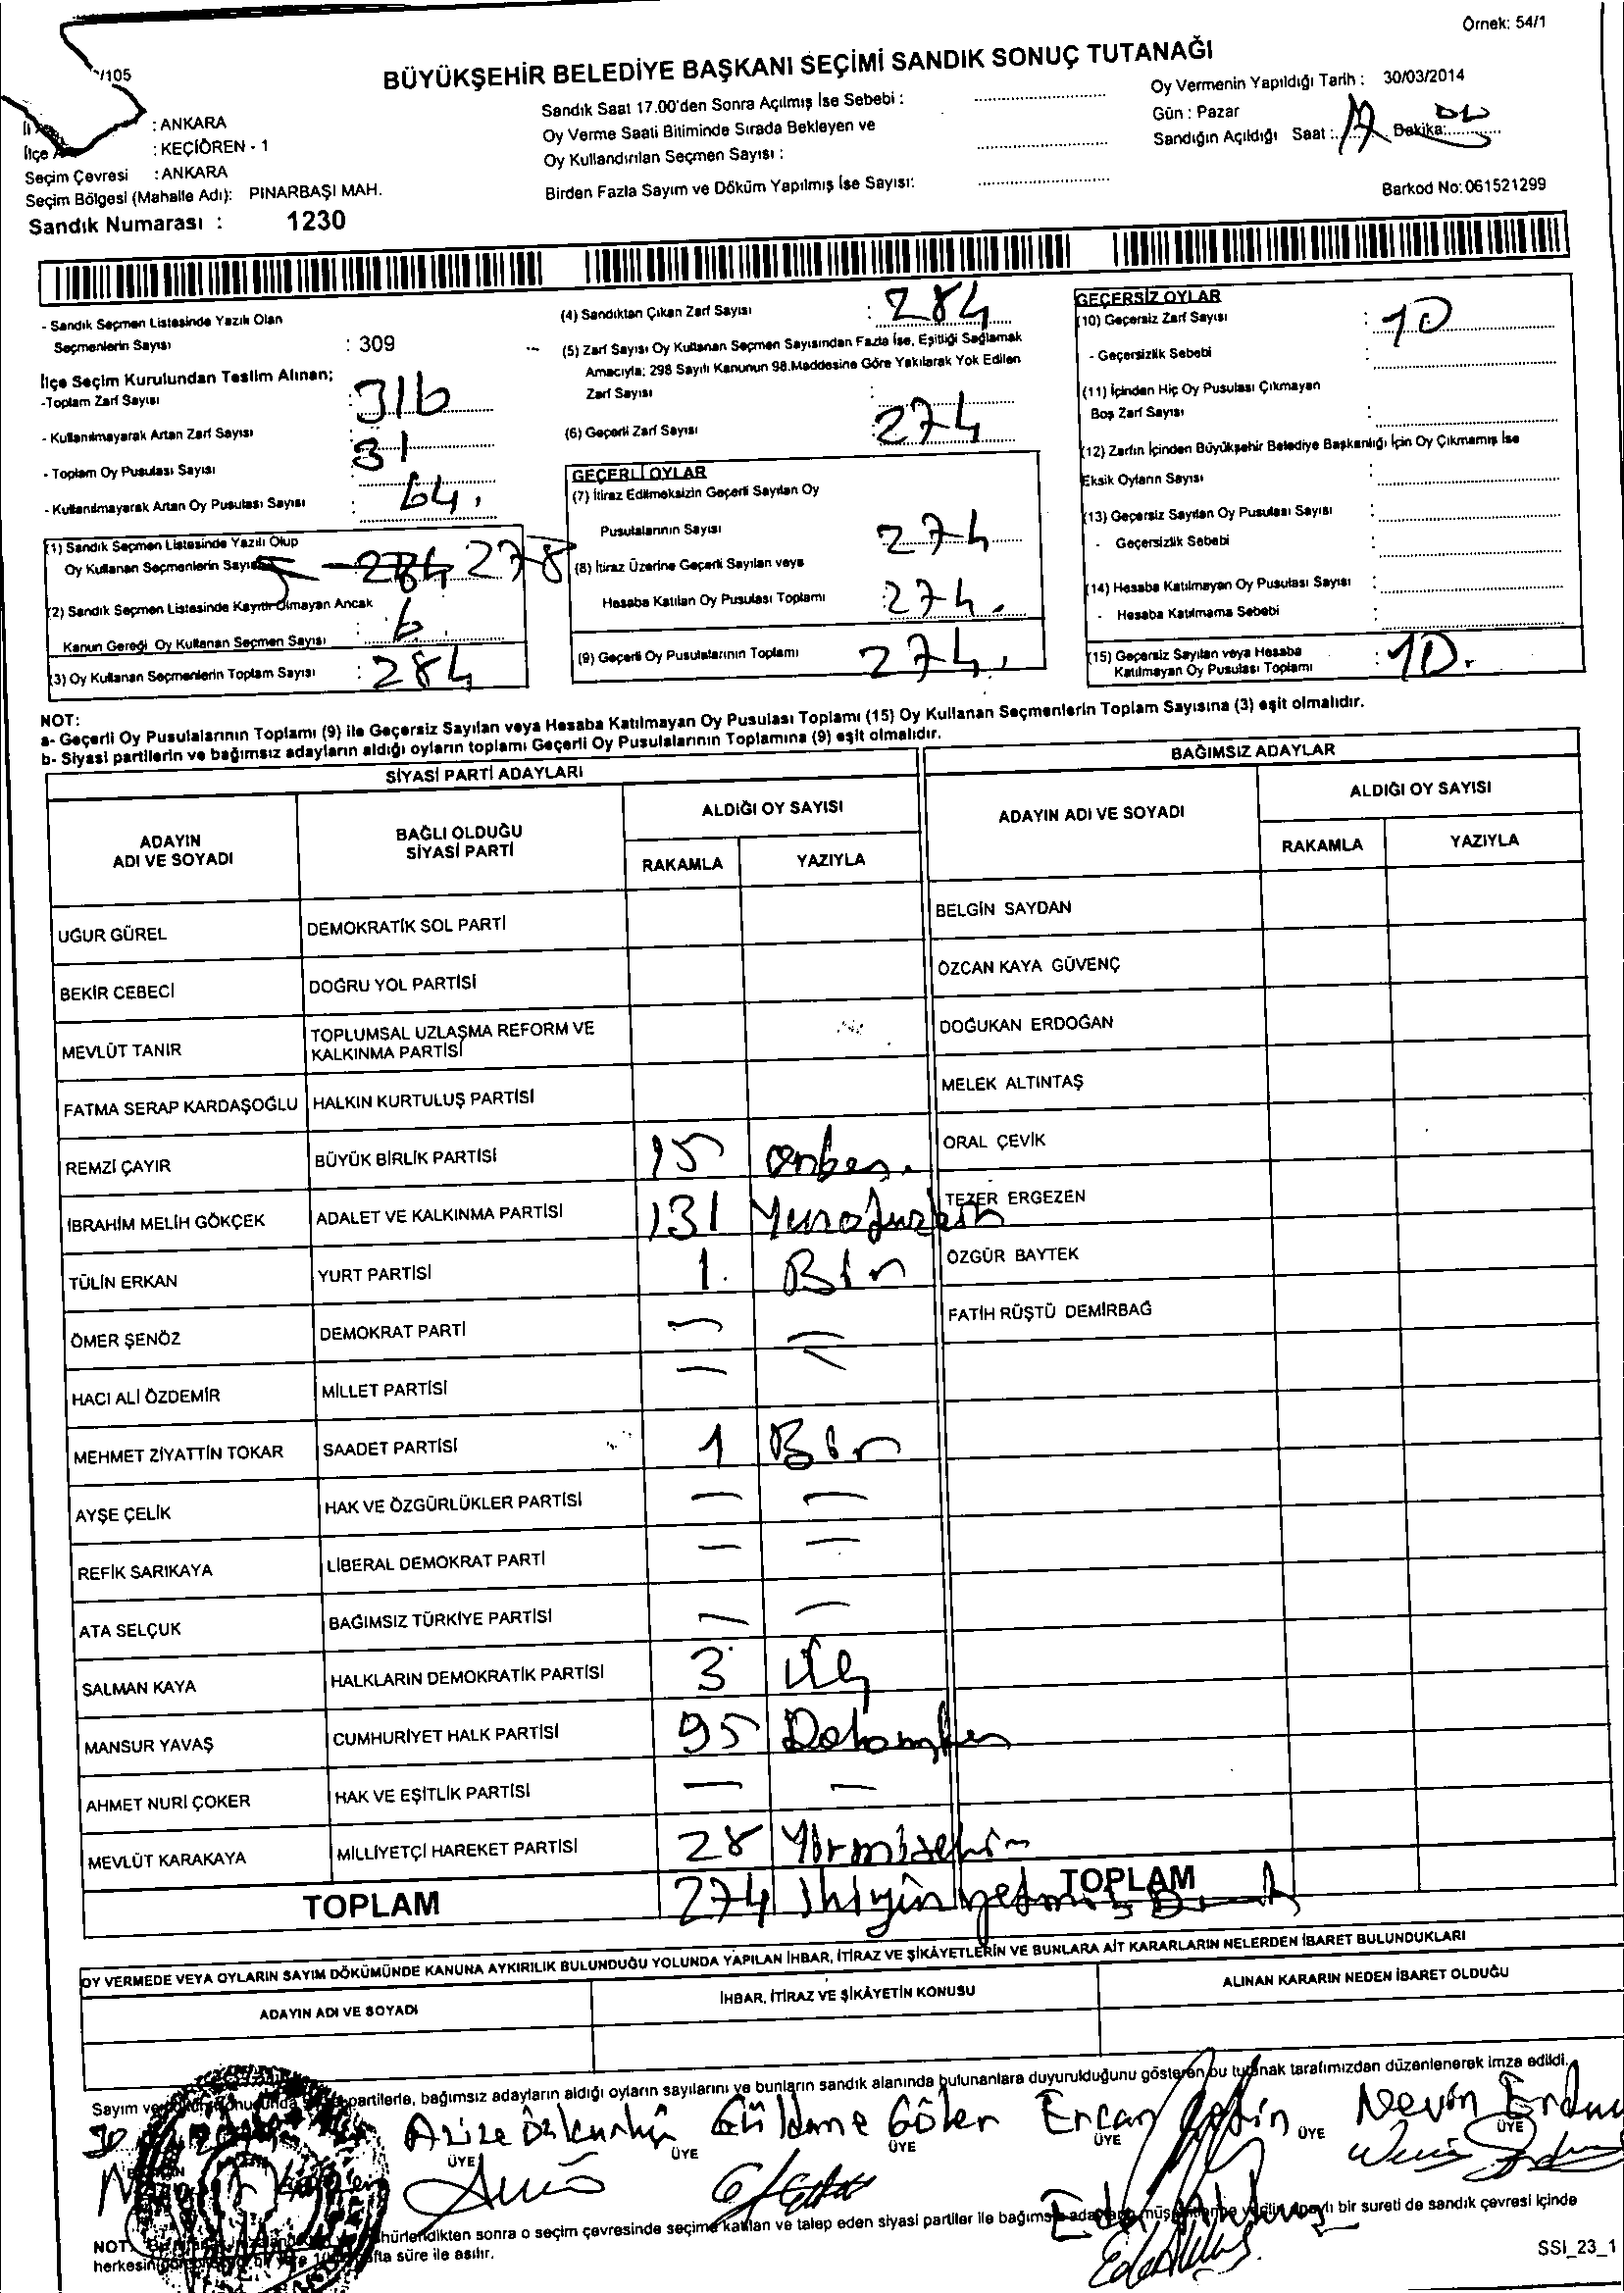 Örnek: 54/1
/105
BÜYÜKŞEHİR BELEDİYE BAŞKANI SEÇİMİ SANDIK SONUÇ TUTANAĞI
: ANKARA
: KEÇİÖREN - 1
Seçim Çevresi : ANKARA
Seçim Bölgesi (Mahalle Adı): PINARBAŞI MAH.
Sandık Numarası : 1230
Sandık Saat 17.00'den Sonra Açılmış İse Sebebi :
Oy Verme Saati Bitiminde Sırada Bekleyen ve
Oy Kullandırılan Seçmen Sayısı :
Birden Fazla Sayım ve Döküm Yapılmış İse Sayısı:
Oy Vermenin Yapıldığı Tarih : 30/03/2014
Gün : Pazar
Sandığın Açıldığı Saat : 17 Dakika:
Barkod No: 061521299
- Sandık Seçmen Listesinde Yazılı Olan
Seçmenlerin Sayısı : 309
İlçe Seçim Kurulundan Teslim Alınan;
-Toplam Zarf Sayısı : 316
- Kullanılmayarak Artan Zarf Sayısı : 31
- Toplam Oy Pusulası Sayısı :
- Kullanılmayarak Artan Oy Pusulası Sayısı : 64.
(1) Sandık Seçmen Listesinde Yazılı Olup
Oy Kullanan Seçmenlerin Sayısı 284 278
(2) Sandık Seçmen Listesinde Kayıtlı Olmayan Ancak
Kanun Gereği Oy Kullanan Seçmen Sayısı : 6
(3) Oy Kullanan Seçmenlerin Toplam Sayısı : 284
(4) Sandıktan Çıkan Zarf Sayısı : 284
(5) Zarf Sayısı Oy Kullanan Seçmen Sayısından Fazla İse, Eşitliği Sağlamak
Amacıyla; 298 Sayılı Kanunun 98.Maddesine Göre Yakılarak Yok Edilen
Zarf Sayısı :
(6) Geçerli Zarf Sayısı : 274
GEÇERLİ OYLAR
(7) İtiraz Edilmeksizin Geçerli Sayılan Oy
Pusulalarının Sayısı 274
(8) İtiraz Üzerine Geçerli Sayılan veya
Hesaba Katılan Oy Pusulası Toplamı : 274.
(9) Geçerli Oy Pusulalarının Toplamı 274.
GEÇERSİZ OYLAR
(10) Geçersiz Zarf Sayısı : 10
- Geçersizlik Sebebi :
(11) İçinden Hiç Oy Pusulası Çıkmayan
Boş Zarf Sayısı :
(12) Zarfın İçinden Büyükşehir Belediye Başkanlığı İçin Oy Çıkmamış İse
Eksik Oyların Sayısı :
(13) Geçersiz Sayılan Oy Pusulası Sayısı :
- Geçersizlik Sebebi :
(14) Hesaba Katılmayan Oy Pusulası Sayısı :
- Hesaba Katılmama Sebebi :
(15) Geçersiz Sayılan veya Hesaba
Katılmayan Oy Pusulası Toplamı : 10.
NOT:
a- Geçerli Oy Pusulalarının Toplamı (9) ile Geçersiz Sayılan veya Hesaba Katılmayan Oy Pusulası Toplamı (15) Oy Kullanan Seçmenlerin Toplam Sayısına (3) eşit olmalıdır.
b- Siyasi partilerin ve bağımsız adayların aldığı oyların toplamı Geçerli Oy Pusulalarının Toplamına (9) eşit olmalıdır.
SİYASİ PARTİ ADAYLARI
BAĞIMSIZ ADAYLAR
ADAYIN ADI VE SOYADI
BAĞLI OLDUĞU SİYASİ PARTİ
ALDIĞI OY SAYISI
RAKAMLA YAZIYLA
ADAYIN ADI VE SOYADI
ALDIĞI OY SAYISI
RAKAMLA YAZIYLA
UĞUR GÜREL DEMOKRATİK SOL PARTİ BELGİN SAYDAN
BEKİR CEBECİ DOĞRU YOL PARTİSİ ÖZCAN KAYA GÜVENÇ
MEVLÜT TANIR TOPLUMSAL UZLAŞMA REFORM VE KALKINMA PARTİSİ DOĞUKAN ERDOĞAN
FATMA SERAP KARDAŞOĞLU HALKIN KURTULUŞ PARTİSİ MELEK ALTINTAŞ
REMZİ ÇAYIR BÜYÜK BİRLİK PARTİSİ 15 onbeş. ORAL ÇEVİK
İBRAHİM MELİH GÖKÇEK ADALET VE KALKINMA PARTİSİ 131 TEZER ERGEZEN
TÜLİN ERKAN YURT PARTİSİ 1. Bir ÖZGÜR BAYTEK
ÖMER ŞENÖZ DEMOKRAT PARTİ — — FATİH RÜŞTÜ DEMİRBAĞ
HACI ALİ ÖZDEMİR MİLLET PARTİSİ — —
MEHMET ZİYATTİN TOKAR SAADET PARTİSİ 1 Bir
AYŞE ÇELİK HAK VE ÖZGÜRLÜKLER PARTİSİ — —
REFİK SARIKAYA LİBERAL DEMOKRAT PARTİ — —
ATA SELÇUK BAĞIMSIZ TÜRKİYE PARTİSİ — —
SALMAN KAYA HALKLARIN DEMOKRATİK PARTİSİ 3 üç
MANSUR YAVAŞ CUMHURİYET HALK PARTİSİ 95
AHMET NURİ ÇOKER HAK VE EŞİTLİK PARTİSİ — —
MEVLÜT KARAKAYA MİLLİYETÇİ HAREKET PARTİSİ 28 Yirmisekiz
TOPLAM 274 TOPLAM
OY VERMEDE VEYA OYLARIN SAYIM DÖKÜMÜNDE KANUNA AYKIRILIK BULUNDUĞU YOLUNDA YAPILAN İHBAR, İTİRAZ VE ŞİKÂYETLERİN VE BUNLARA AİT KARARLARIN NELERDEN İBARET BULUNDUKLARI
ADAYIN ADI VE SOYADI İHBAR, İTİRAZ VE ŞİKÂYETİN KONUSU ALINAN KARARIN NEDEN İBARET OLDUĞU
Sayım partilerle, bağımsız adayların aldığı oyların sayılarını ve bunların sandık alanında bulunanlara duyurulduğunu gösteren bu tutanak tarafımızdan düzenlenerek imza edildi.
Azize Güldane Göler Ercan Nevin
ÜYE ÜYE ÜYE ÜYE ÜYE ÜYE
NOT: sonra o seçim çevresinde seçime katılan ve talep eden siyasi partiler ile bağımsız bir sureti de sandık çevresi içinde
herkesin hafta süre ile asılır.
SSI_23_1